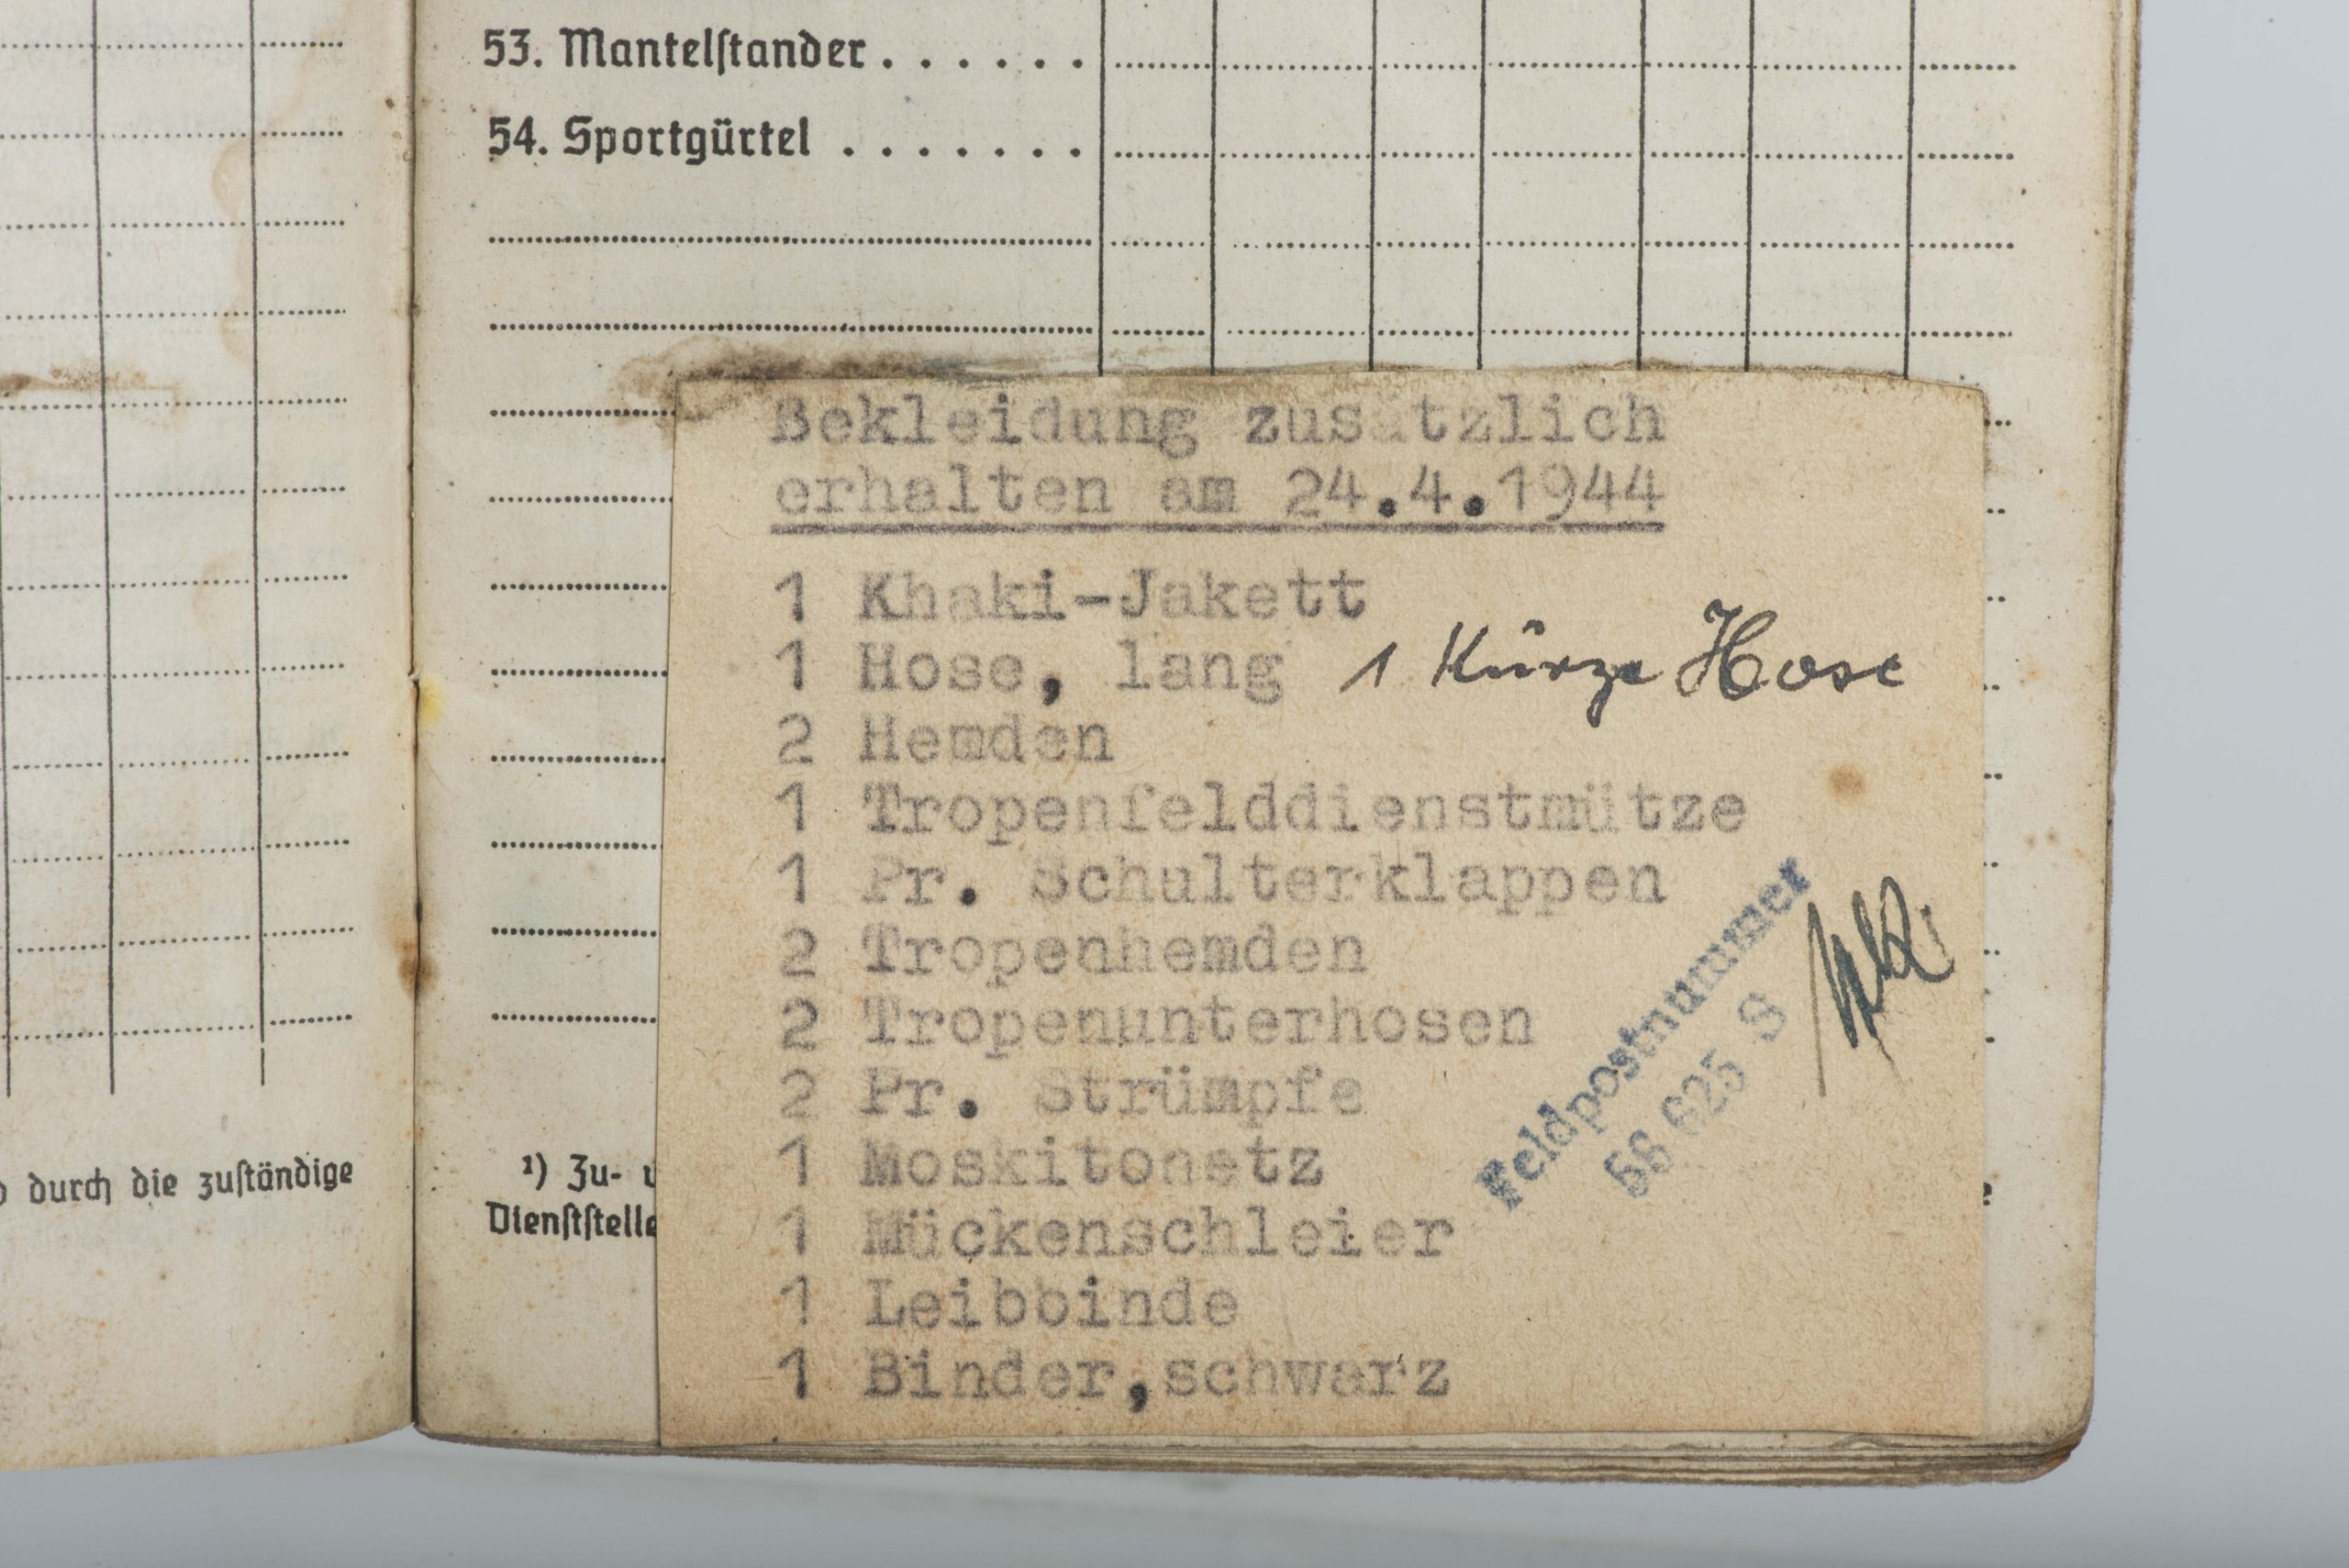 53. Mantelſtander . . . . . .
54. Sportgürtel . . . . . . .
Bekleidung zusätzlich
erhalten am 24.4.1944
1 Khaki-Jakett
1 Hose, lang 1 Kürze Hose
2 Hemden
1 Tropenfelddienstmütze
1 Pr. Schulterklappen
2 Tropenhemden
2 Tropenunterhosen
2 Pr. Strümpfe
1 Moskitonetz
1 Mückenschleier
1 Leibbinde
1 Binder,schwarz
Feldpostnummer
56 625 S
durch die zuſtändige
¹) Zu-
Dienſtſtelle